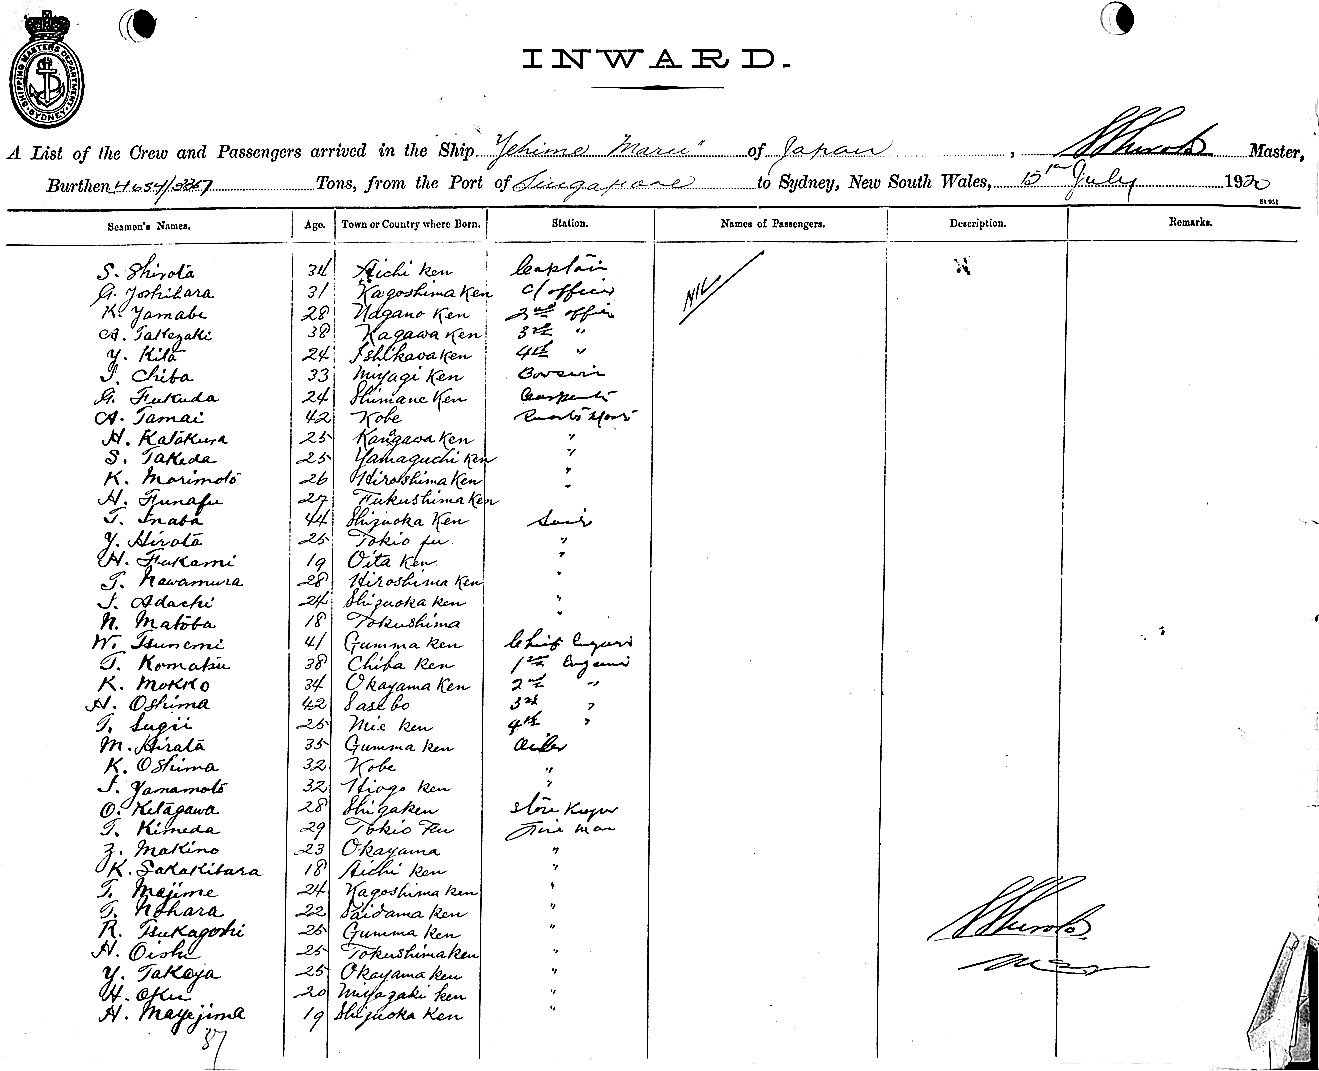 SHIPPING MASTERS DEPARTMENT SYDNEY
INWARD.
A List of the Crew and Passengers arrived in the Ship "Yehime Maru" of Japan, S Shirota Master,
Burthen 4654/3367 Tons, from the Port of Singapore to Sydney, New South Wales, 15th July 1920
Seamen's Names. Age. Town or Country where Born. Station. Names of Passengers. Description. Remarks.
S. Shirota 34 Aichi Ken Captain NIL
G. Yoshihara 31 Kagoshima Ken C/officer
K. Yamabe 28 Nagano Ken 2nd offir
A. Takezaki 38 Kagawa Ken 3rd "
Y. Kita 24 Ishikawa Ken 4th "
T. Chiba 33 Miyagi Ken Bowswin
G. Fukuda 24 Shimane Ken Carpenter
A. Tamai 42 Kobe
H. Katakura 25 Kangawa Ken "
S. Takeda 25 Yamaguchi Ken "
K. Morimoto 26 Hiroshima Ken "
H. Funafu 27 Fukushima Ken "
T. Inaba 44 Shizuoka Ken
Y. Hirota 25 Tokio fu "
H. Fukami 19 Oita Ken "
T. Nawamura 28 Hiroshima Ken "
S. Adachi 24 Shizuoka Ken "
N. Matoba 18 Tokushima "
W. Tsunemi 41 Gumma Ken Chief
T. Komatsu 38 Chiba Ken 1st
K. Mokko 34 Okayama Ken 2nd "
H. Oshima 42 Sasebo 3rd "
T. Sugii 25 Mie Ken 4th "
M. Hirata 35 Gumma Ken Oiler
K. Oshima 32 Kobe "
S. Yamamoto 32 Hiogo Ken "
O. Kitagawa 28 Shigaken Store Keeper
T. Kimeda 29 Tokio Fu Fire man
Z. Makino 23 Okayama "
K. Sakakibara 18 Aichi Ken "
T. Majime 24 Kagoshima Ken "
T. Nohara 22 Saidama Ken "
R. Tsukagoshi 25 Gumma Ken "
H. Oishi 25 Tokushima Ken "
Y. Takaya 25 Okayama Ken "
H. Oku 20 Miyazaki Ken "
H. Mayejima 19 Shizuoka Ken "
S Shirota
37